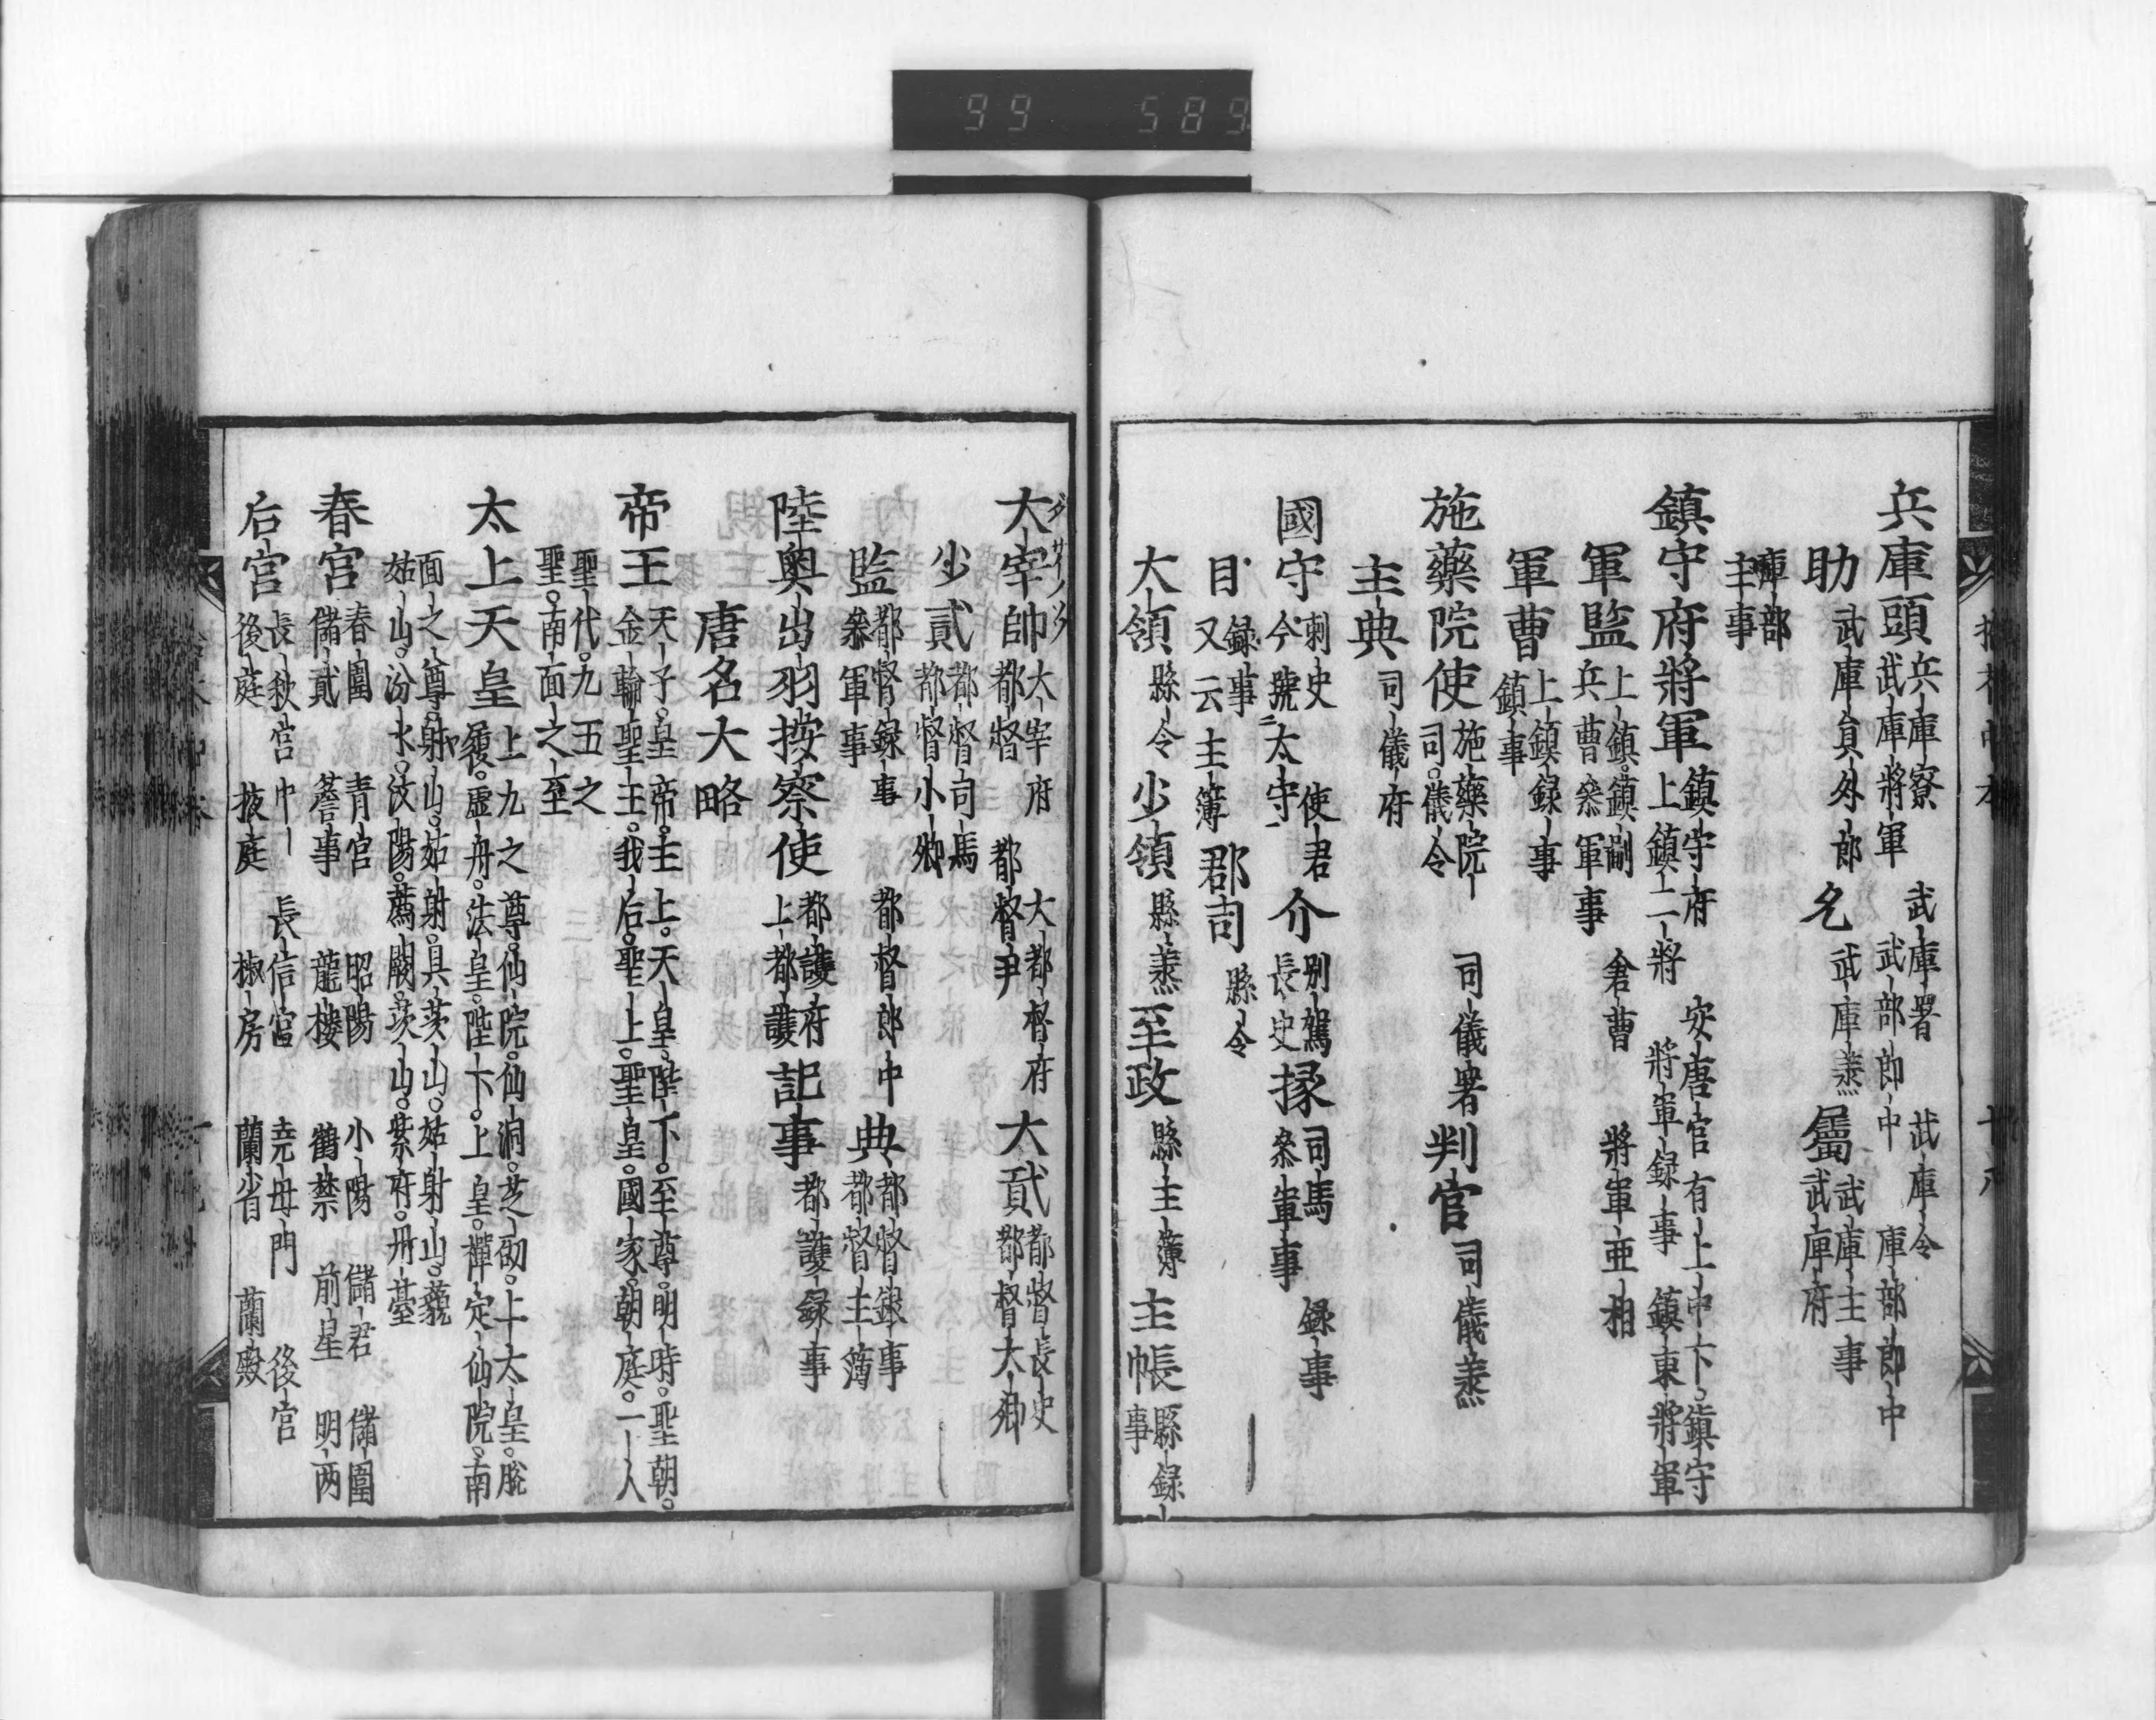 99 589
兵庫頭 兵庫寮 武庫署 武庫令
武庫將軍 武部郎中 庫部郎中
助 武庫員外郎 允 武庫丞 屬 武庫主事
武庫府
庫部
主事
鎮守府將軍 鎮守府 安唐官有上中下。鎮守
上鎮上一將 將軍録事 鎮東將軍
軍監 上鎮。鎮副 倉曹 將軍亜相
兵曹叅軍事
軍曹 上鎮録事
鎮事
施藥院使 施藥院 司儀署 判官 司儀丞
司。儀令
主典 司儀府
國守 刺史 使君 介 別駕 掾 司馬 録事
今號二太守一 長史 叅軍事
目 録事 郡司 縣令
又云主簿
大領 縣令 少領 縣丞 至政 縣主簿 主帳 縣録
事
大宰帥 大宰府 大都督府 大貳 都督長史
都督 都督尹 都督大卿
少貳 都督司馬
都督小卿
監 都督録事 都督郎中 典 都督録事
叅軍事 都督主簿
陸奥出羽按察使 都護府 記事 都護録事
上都護
唐名大略
帝王 天子。皇帝。主上。天皇。陛下。至尊。明時。聖朝。
金輪聖王。聖王。我后。聖上。聖皇。國家。朝庭。一人
聖代。九五之
聖。南面之至
太上天皇 上九之尊。仙院。仙洞。芝砌。上太皇。脱
履。虚舟。法皇。陛下。上皇。禪定仙院。南
面之尊。射山。姑射。具茨山。姑射山。藐
姑山。汾水。汶陽。薦闕。茨山。紫府。丹臺
春宮 春圍 青宮 昭陽 小陽 儲君 儲圍
儲貳 詹事 龍樓 鶴禁 前星 明两
后宮 長秋宮中 長信宮 尭母門 後宮
後庭 掖庭 椒房 蘭省 蘭殿